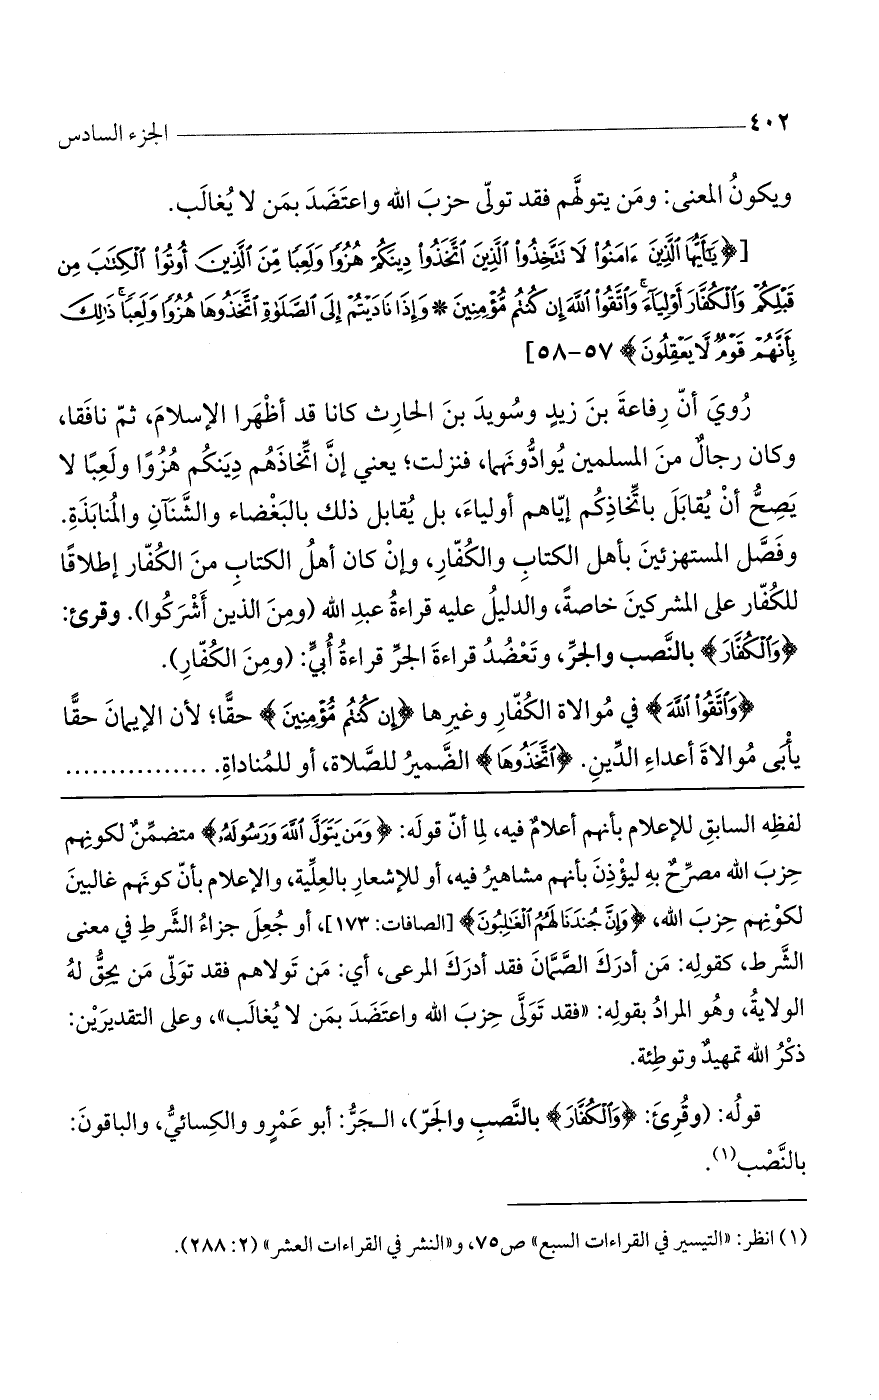 ٤٠٢ ـــــــــــــــــ الجزء السادس
ويكونُ المعنى: ومَن يتولَّهم فقد تولّى حزبَ الله واعتَضَدَ بمَن لا يُغالَب.
[﴿يَٰٓأَيُّهَا ٱلَّذِينَ ءَامَنُوا۟ لَا تَتَّخِذُوا۟ ٱلَّذِينَ ٱتَّخَذُوا۟ دِينَكُمْ هُزُوًا وَلَعِبًا مِّنَ ٱلَّذِينَ أُوتُوا۟ ٱلْكِتَٰبَ مِن
قَبْلِكُمْ وَٱلْكُفَّارَ أَوْلِيَآءَ ۚ وَٱتَّقُوا۟ ٱللَّهَ إِن كُنتُم مُّؤْمِنِينَ * وَإِذَا نَادَيْتُمْ إِلَى ٱلصَّلَوٰةِ ٱتَّخَذُوهَا هُزُوًا وَلَعِبًا ۚ ذَٰلِكَ
بِأَنَّهُمْ قَوْمٌ لَّا يَعْقِلُونَ﴾ ٥٧-٥٨]
رُويَ أنّ رِفاعةَ بنَ زيدٍ وسُويدَ بنَ الحارِث كانا قد أظْهَرا الإسلامَ، ثمّ نافَقا،
وكان رجالٌ منَ المسلمين يُوادُّونَهما، فنزلت؛ يعني إنَّ اتِّخاذَهُم دِينَكم هُزُوًا ولَعِبًا لا
يَصِحُّ أنْ يُقابَلَ باتِّخاذِكُم إيّاهم أولياءَ، بل يُقابل ذلك بالبَغْضاء والشَّنَآنِ والمُنابَذَةِ.
وفَصَّل المستهزئينَ بأهل الكتابِ والكُفّارِ، وإنْ كان أهلُ الكتابِ منَ الكُفّار إطلاقًا
للكُفّار على المشركينَ خاصةً، والدليلُ عليه قراءةُ عبدِ الله (ومِنَ الذين أَشْرَكُوا). وقرئ:
﴿وَٱلْكُفَّارَ﴾ بالنَّصب والجرِّ، وتَعْضُدُ قراءةَ الجرِّ قراءةُ أُبيٍّ: (ومِنَ الكُفّارِ).
﴿وَٱتَّقُوا۟ ٱللَّهَ﴾ في مُوالاة الكُفّارِ وغيرِها ﴿إِن كُنتُم مُّؤْمِنِينَ﴾ حقًّا؛ لأن الإيمانَ حقًّا
يأْبَى مُوالاةَ أعداءِ الدِّينِ. ﴿ٱتَّخَذُوهَا﴾ الضَّميرُ للصَّلاة، أو للمُناداةِ. ................
لفظِه السابقِ للإعلام بأنهم أعلامٌ فيه، لِما أنّ قولَه: ﴿وَمَن يَتَوَلَّ ٱللَّهَ وَرَسُولَهُۥ﴾ متضمِّنٌ لكونِهم
حِزبَ الله مصرِّحٌ بهِ ليؤْذِنَ بأنهم مشاهيرُ فيه، أو للإشعارِ بالعِلِّية، والإعلام بأنّ كونَهم غالبينَ
لكوْنِهم حِزبَ الله، ﴿وَإِنَّ جُندَنَا لَهُمُ ٱلْغَٰلِبُونَ﴾ [الصافات: ١٧٣]، أو جُعِلَ جزاءُ الشَّرطِ في معنى
الشَّرط، كقولِه: مَن أدرَكَ الصَّمَّانَ فقد أدرَكَ المرعى، أي: مَن تَولاهم فقد تولّى مَن يحِقُّ لهُ
الولايةُ، وهُو المرادُ بقولِه: «فقد تَوَلَّى حِزبَ الله واعتَضَدَ بمَن لا يُغالَب»، وعلى التقديرَيْن:
ذكْرُ الله تمهيدٌ وتوطِئة.
قولُه: (وقُرِئَ: ﴿وَٱلْكُفَّارَ﴾ بالنَّصبِ والجَرّ)، الـجَرُّ: أبو عَمْرٍو والكِسائيُّ، والباقونَ:
بالنَّصْب(١).
(١) انظر: «التيسير في القراءات السبع» ص٧٥، و«النشر في القراءات العشر» (٢: ٢٨٨).